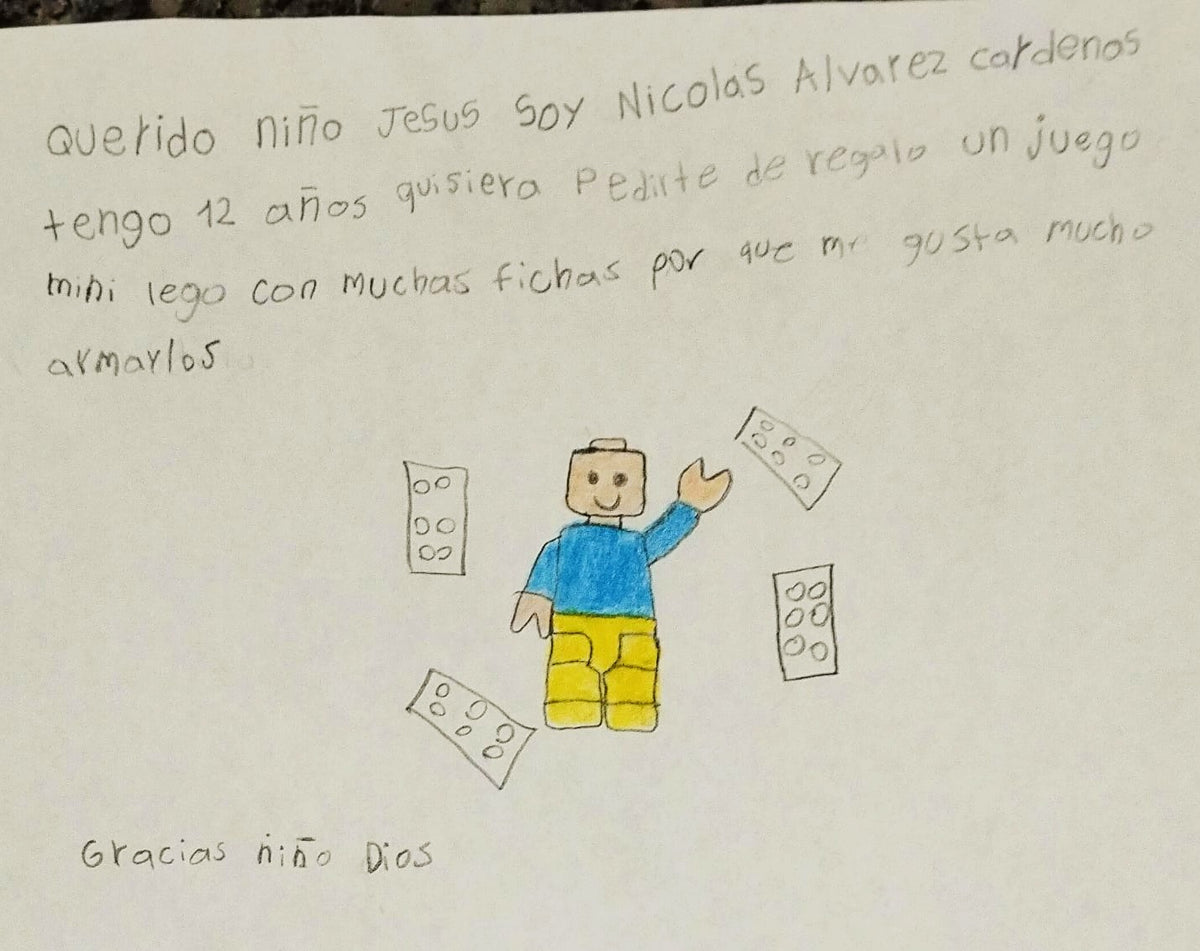 Querido niño Jesus soy Nicolas Alvarez cardenos
tengo 12 años quisiera Pedirte de regalo un juego
mini lego con muchas fichas por que me gusta mucho
armarlos
Gracias niño Dios